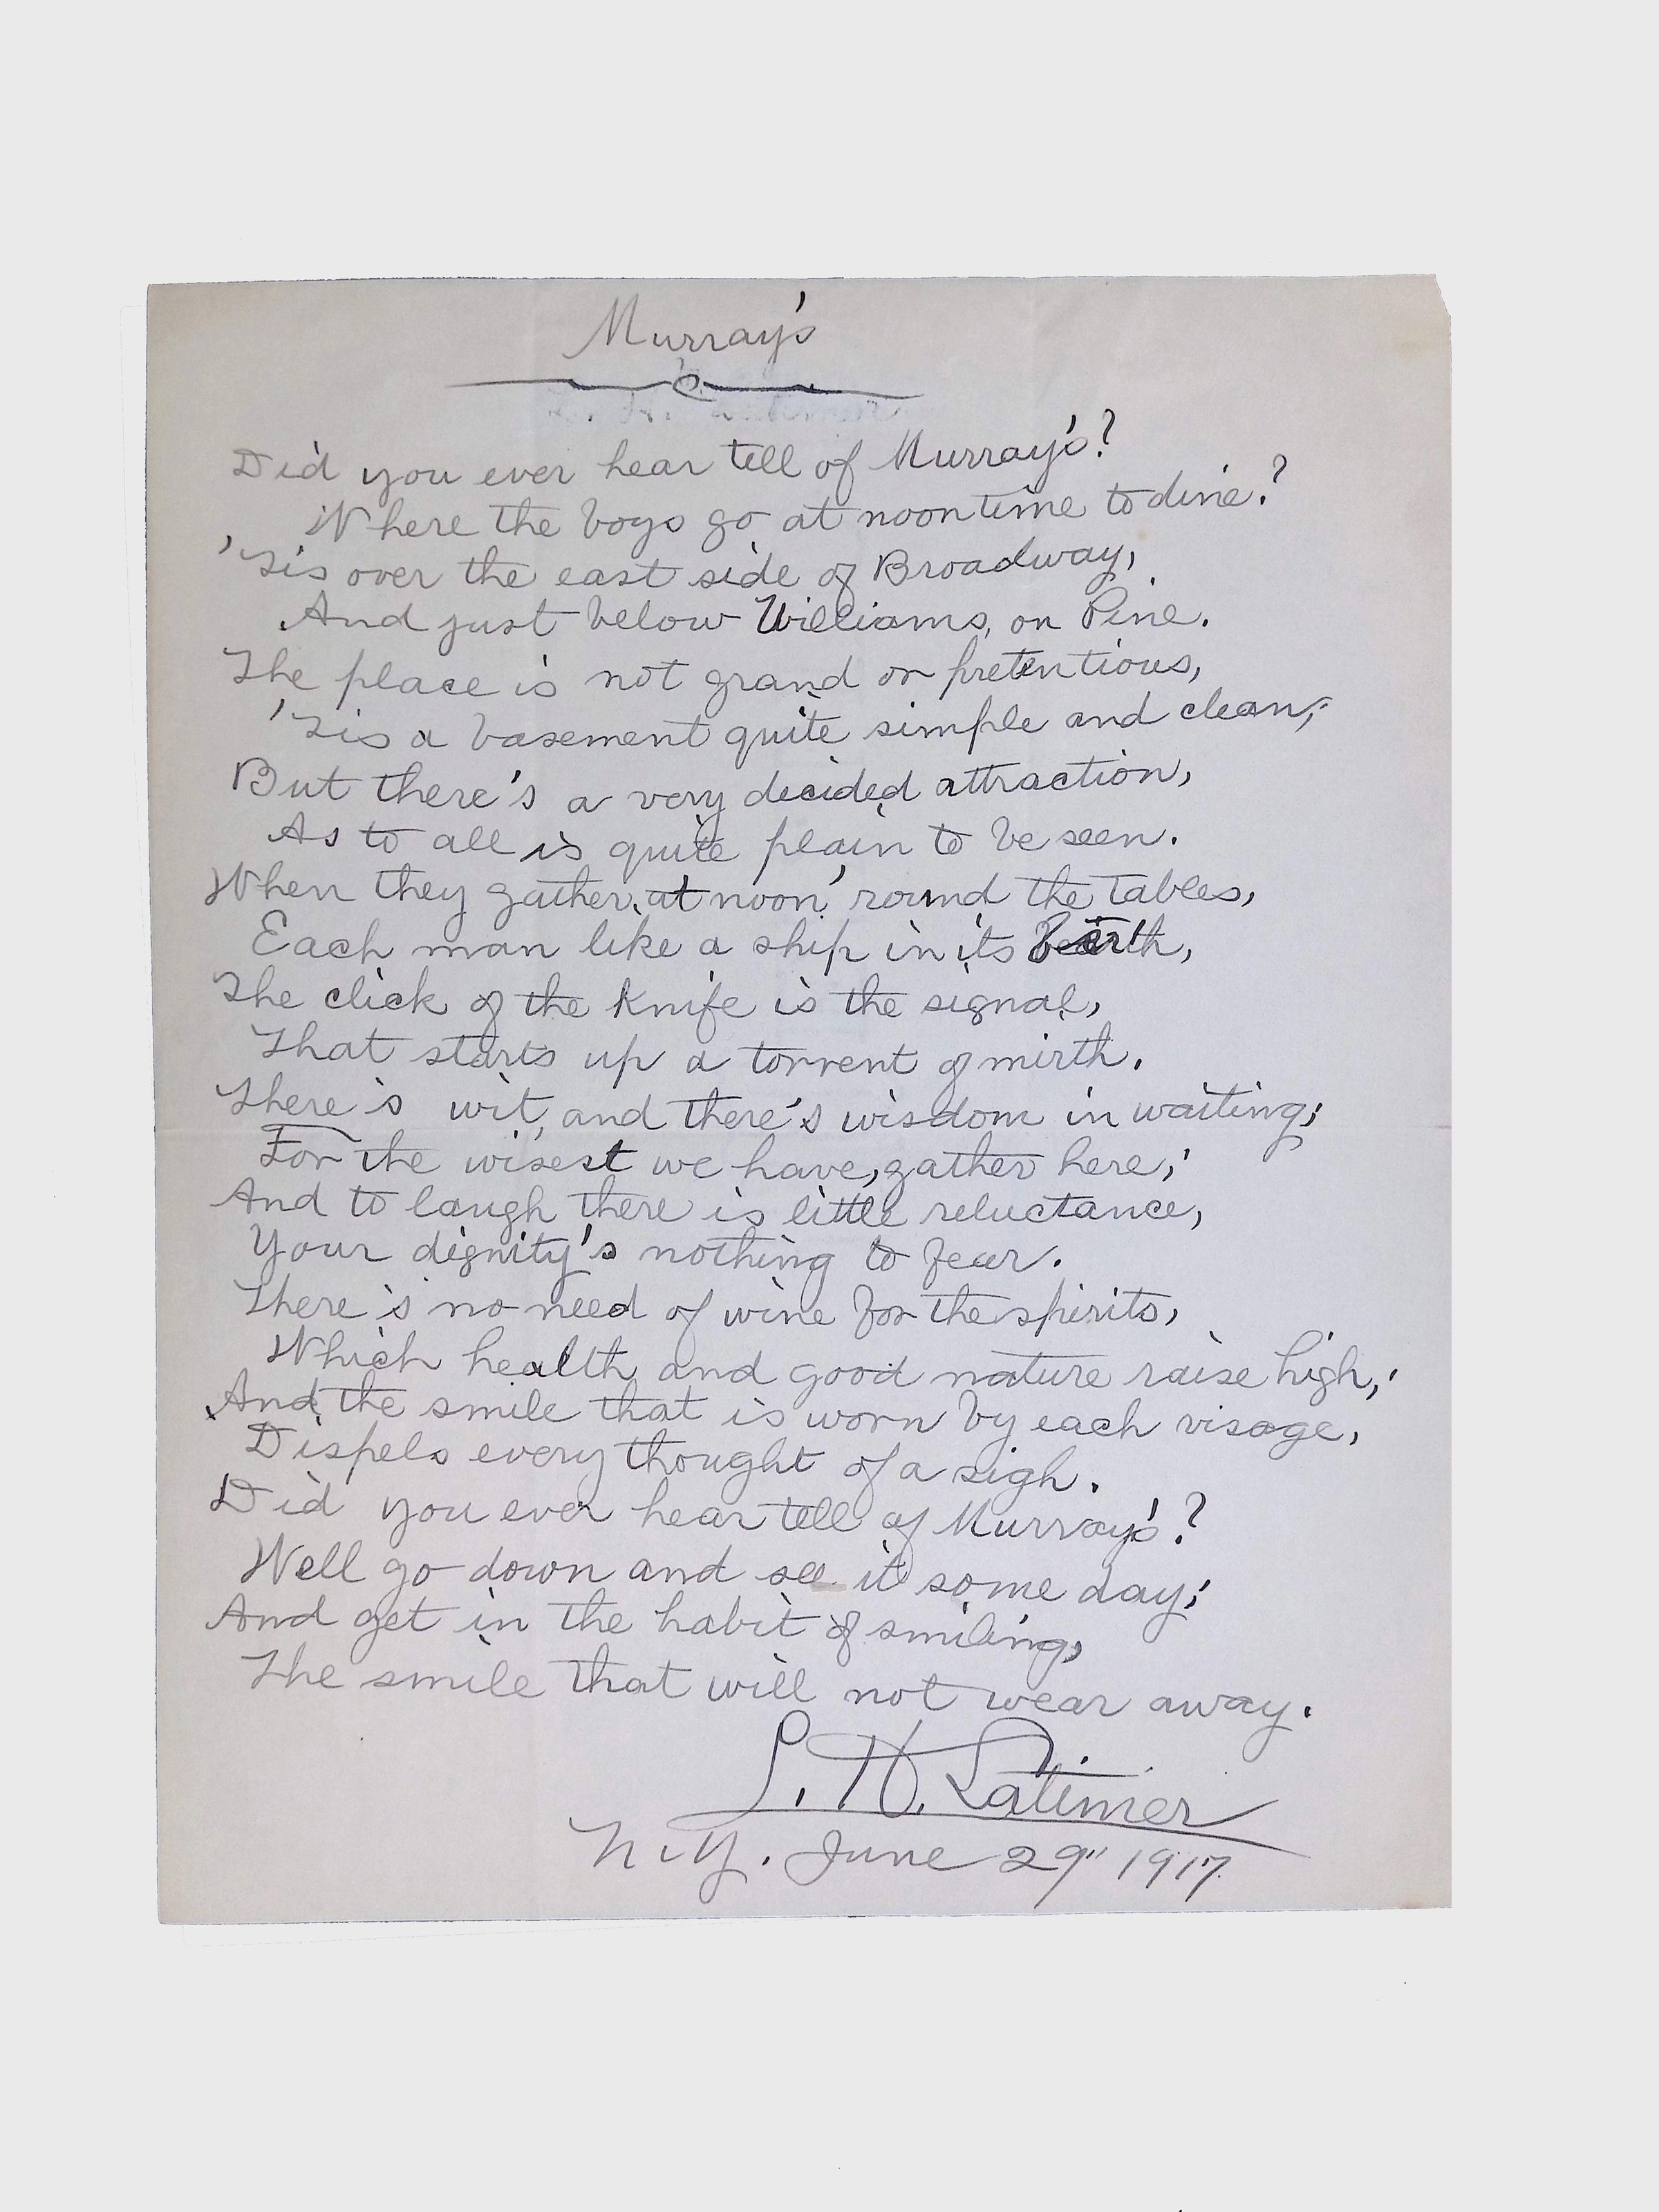 Murray's
Did you ever hear tell of Murray's?
Where the boys go at noontime to dine?
'Tis over the east side of Broadway,
And just below Williams, on Pine.
The place is not grand or pretentious,
'Tis a basement quite simple and clean;
But there's a very decided attraction,
As to all is quite plain to be seen.
When they gather, at noon, 'round the tables,
Each man like a ship in its berth,
The click of the knife is the signal,
That starts up a torrent of mirth.
There's wit, and there's wisdom in waiting;
For the wisest we have, gather here;
And to laugh there is little reluctance,
Your dignity's nothing to fear.
There's no need of wine for the spirits,
Which health and good nature raise high;
And the smile that is worn by each visage,
Dispels every thought of a sigh.
Did you ever hear tell of Murray's?
Well go down and see it some day;
And get in the habit of smiling,
The smile that will not wear away.
L. H. Latimer
N.Y. June 29" 1917.